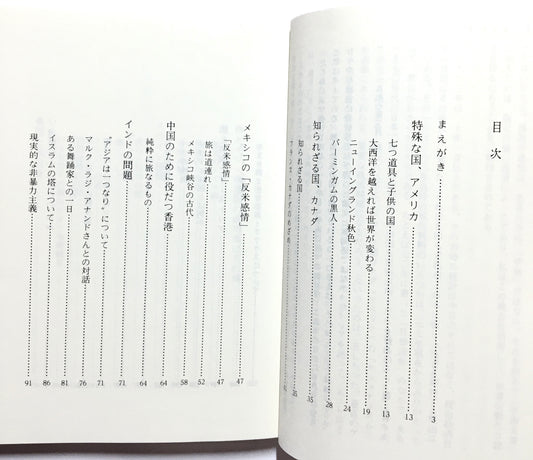 目次
まえがき……3
特殊な国、アメリカ……13
七つ道具と子供の国……13
大西洋を越えれば世界が変わる……19
ニューイングランド秋色……24
バーミンガムの黒人……28
知られざる国、カナダ……35
知られざる国……35
フランス・カナダのめざめ……
メキシコの「反米感情」……47
「反米感情」……47
旅は道連れ……52
メキシコ峡谷の古代……58
中国のために役だつ香港……64
純粋に旅なるもの……64
インドの問題……71
"アジアは一つなり"について……71
マルク・ラジ・アナンドさんとの対話……76
ある舞踊家との一日……81
イスラムの塔について……86
現実的な非暴力主義……91